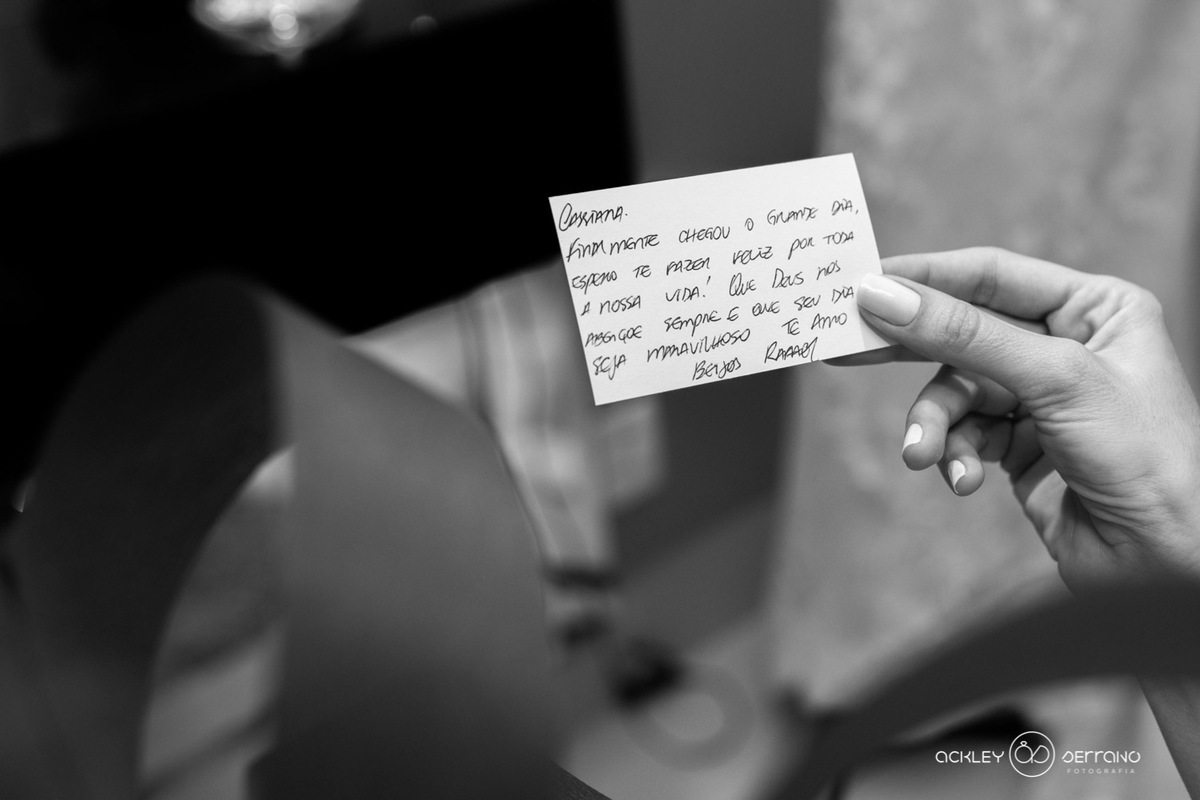 Cassiana.
Finalmente chegou o grande dia,
espero te fazer feliz por toda
a nossa vida! Que Deus nos
abençoe sempre e que seu dia
seja maravilhoso te amo
Beijos Rafael
ACKLEY SERRANO
FOTOGRAFIA